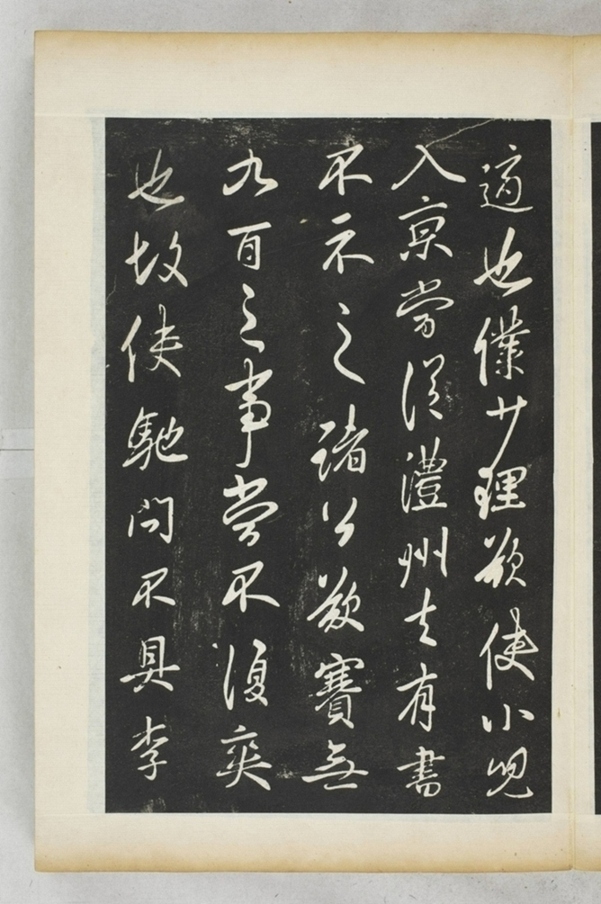 適也僕廿理欲使小兒
入京當從澧州去有書
不示之諸公敬賽無
九百之事當不復奕
也故使馳問不具李